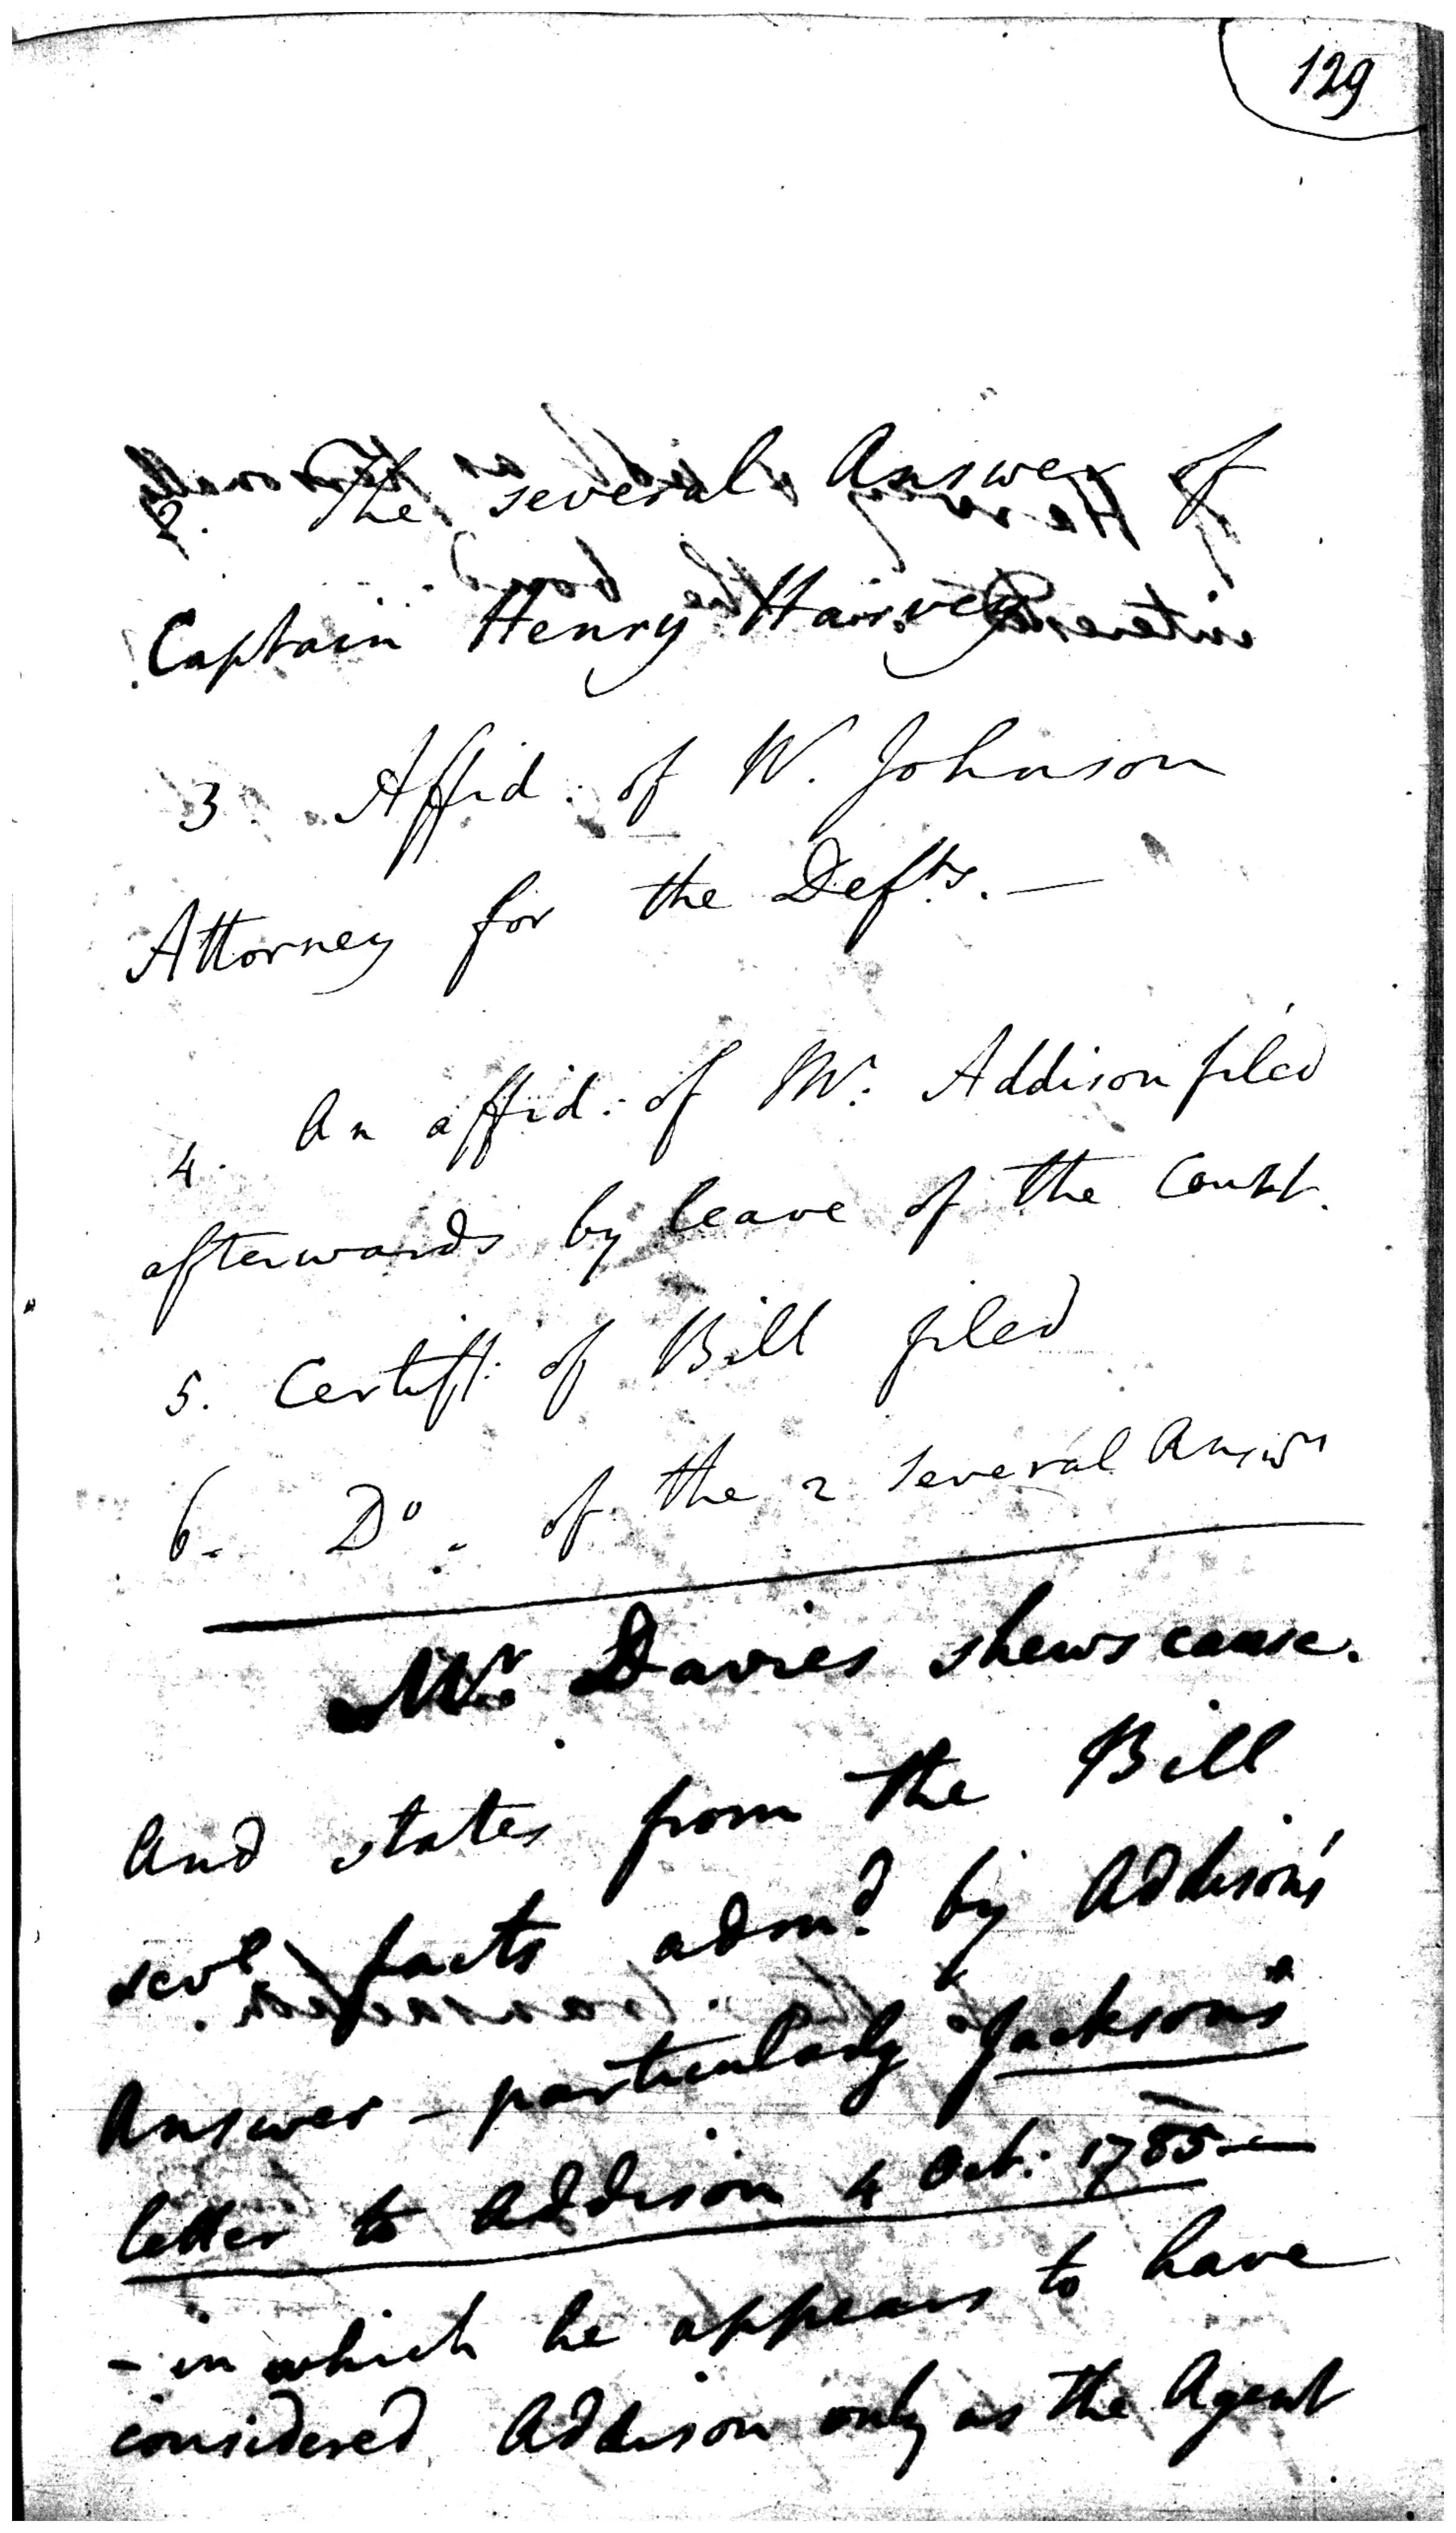 129
2. The several Answer of
Captain Henry Harvey
3. Affid. of W. Johnson
Attorney for the Defts. —
4. An affid: of Mr. Addison filed
afterwards by leave of the Court.
5. Certiff: of Bill filed
6. Do. of the 2 several Answrs
Mr. Davies shews cause.
And states from the Bill
sevl. facts admd. by Addison's
Answer - particularly Jackson's
letter to Addison 4 Oct: 1785 —
- in which he appears to have
considered Addison only as the Agent